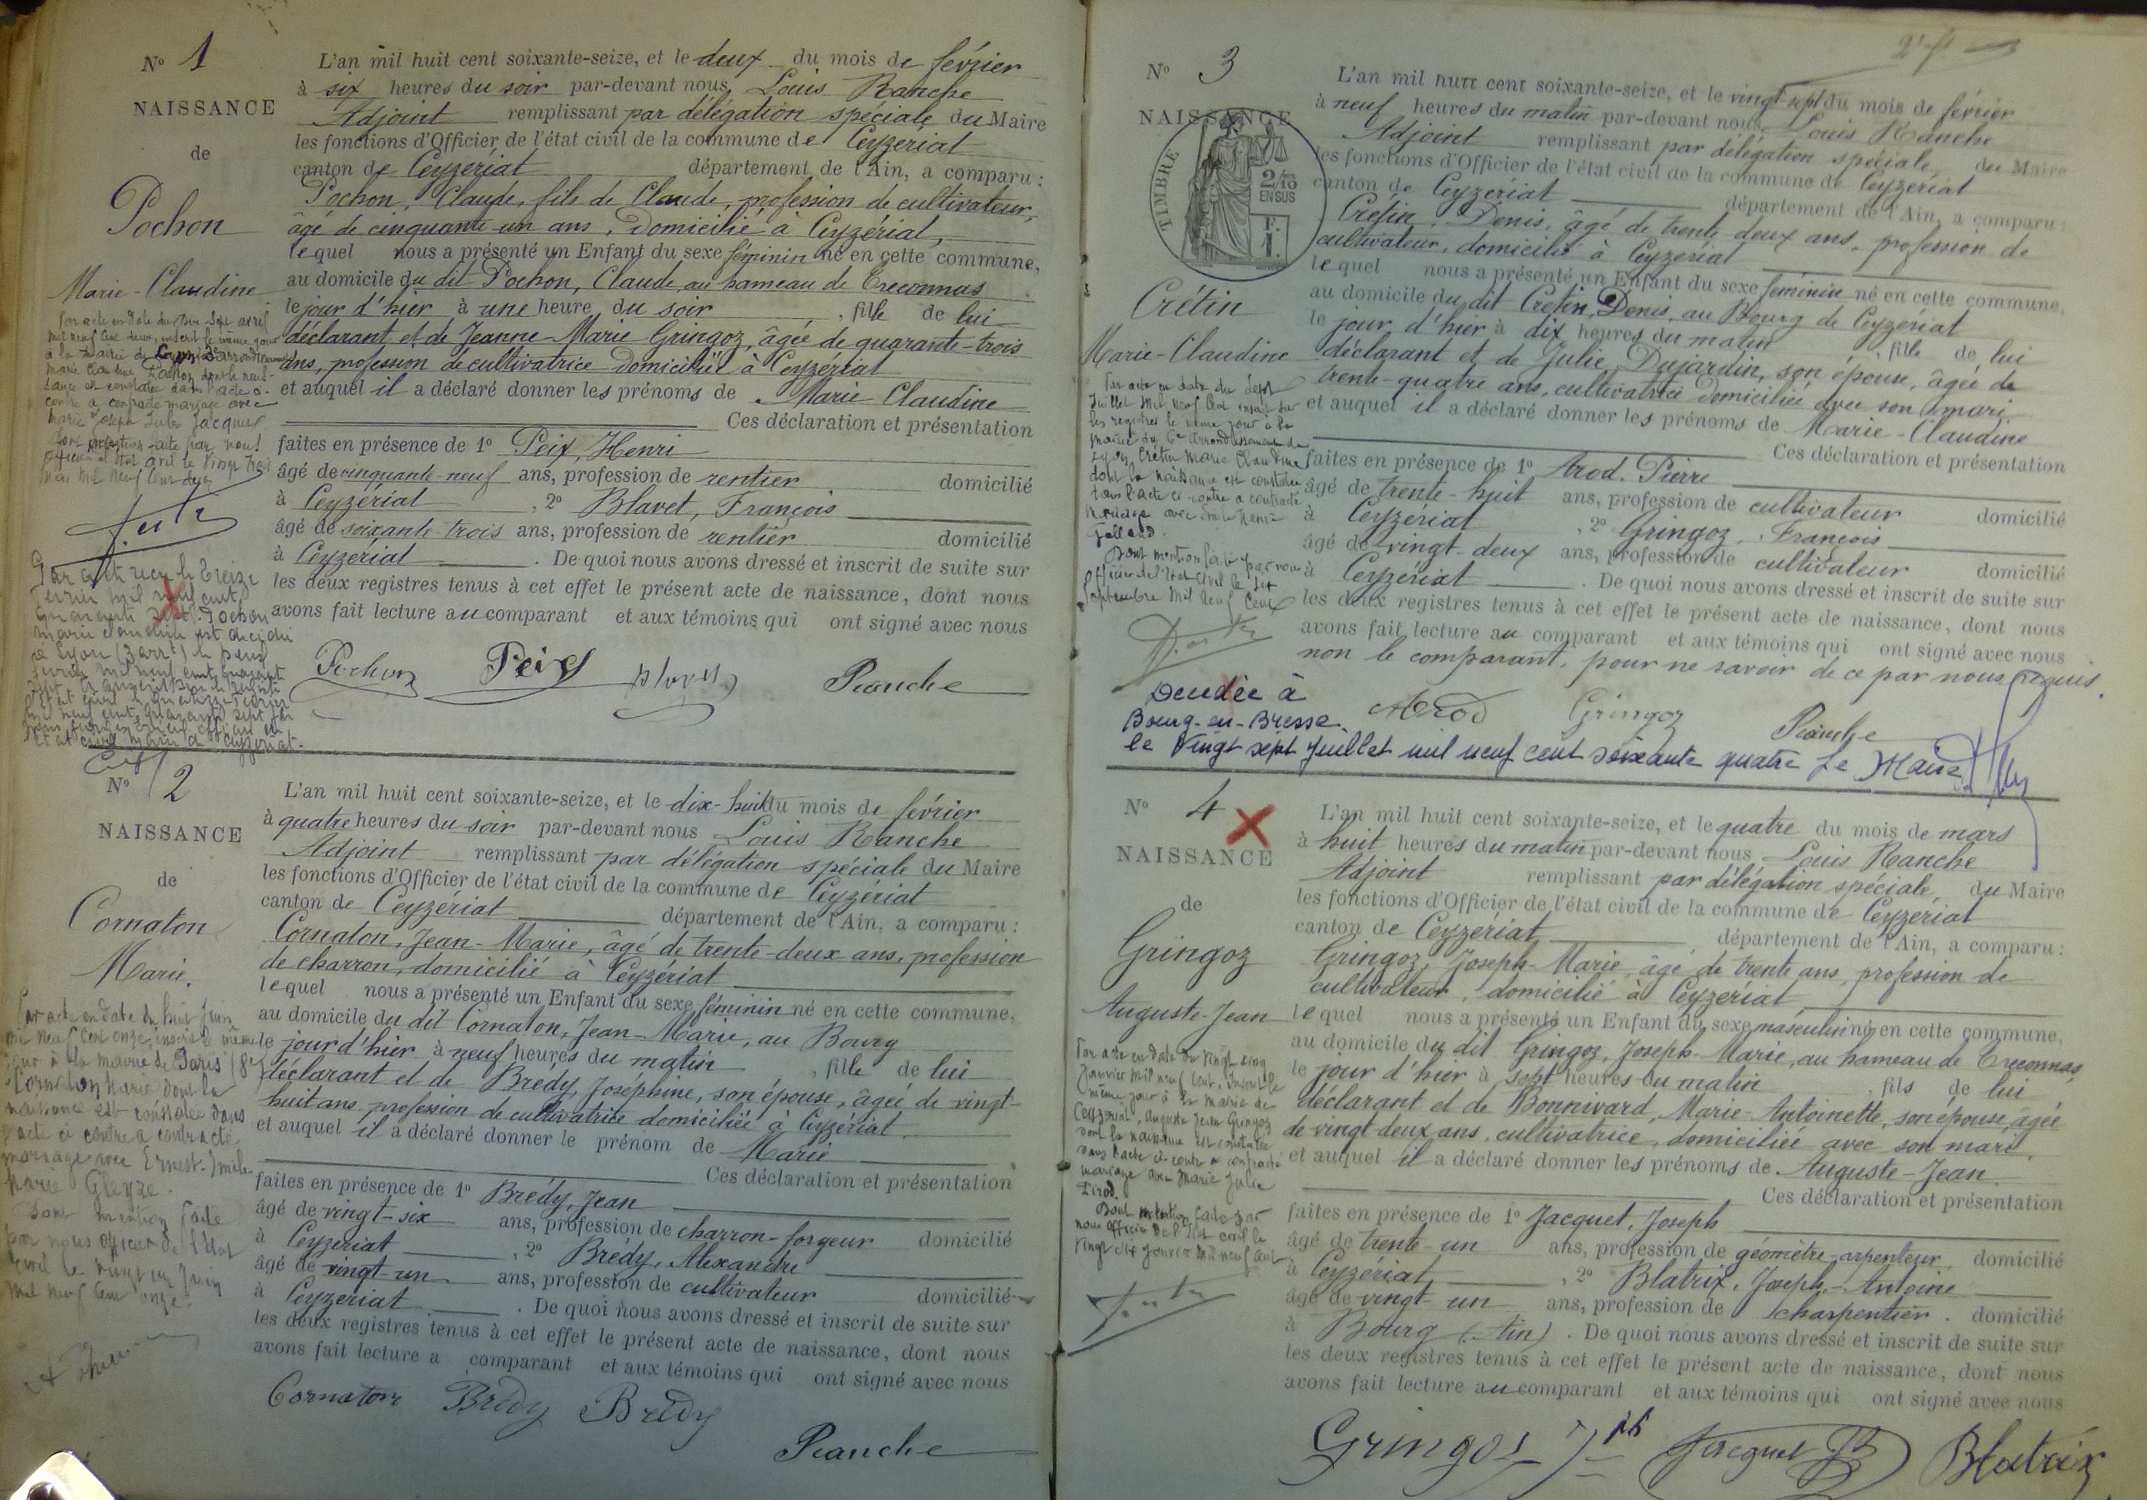 N° 1
NAISSANCE
de
Pochon
Marie-Claudine
L'an mil huit cent soixante-seize, et le deux du mois de février
à six heures du soir par-devant nous, Louis Ranche
Adjoint remplissant par délégation spéciale du Maire
les fonctions d'Officier de l'état civil de la commune de Ceyzériat
canton de Ceyzériat département de l'Ain, a comparu :
Pochon, Claude, fils de Claude, profession de cultivateur,
âgé de cinquante-un ans, domicilié à Ceyzériat,
lequel nous a présenté un Enfant du sexe féminin né en cette commune,
au domicile du dit Pochon, Claude, au hameau de Treconnas
le jour d'hier à une heure du soir, fille de lui
déclarant et de Jeanne-Marie Gringoz, âgée de quarante-trois
ans, profession de cultivatrice domiciliée à Ceyzériat
et auquel il a déclaré donner les prénoms de Marie Claudine
Ces déclaration et présentation
faites en présence de 1° Peix, Henri
âgé de cinquante-neuf ans, profession de rentier domicilié
à Ceyzériat, 2° Blavet, François
âgé de soixante-trois ans, profession de rentier domicilié
à Ceyzériat. De quoi nous avons dressé et inscrit de suite sur
les deux registres tenus à cet effet le présent acte de naissance, dont nous
avons fait lecture au comparant et aux témoins qui ont signé avec nous
Pochon Peix Blavet Ranche
Marie Claudine Pochon dont la nais-
sance est constatée dans l'acte ci-
contre a contracté mariage avec
N° 2
NAISSANCE
de
Cornaton
Marie.
L'an mil huit cent soixante-seize, et le dix-huit du mois de février
à quatre heures du soir par-devant nous Louis Ranche
Adjoint remplissant par délégation spéciale du Maire
les fonctions d'Officier de l'état civil de la commune de Ceyzériat
canton de Ceyzériat département de l'Ain, a comparu :
Cornaton, Jean-Marie, âgé de trente-deux ans, profession
de charron, domicilié à Ceyzériat
lequel nous a présenté un Enfant du sexe féminin né en cette commune,
au domicile du dit Cornaton, Jean-Marie, au Bourg
le jour d'hier à neuf heures du matin, fille de lui
déclarant et de Brédy, Joséphine, son épouse, âgée de vingt-
huit ans, profession de cultivatrice domiciliée à Ceyzériat
et auquel il a déclaré donner le prénom de Marie
Ces déclaration et présentation
faites en présence de 1° Brédy, Jean
âgé de vingt-six ans, profession de charron-forgeur domicilié
à Ceyzériat, 2° Brédy, Alexandre
âgé de vingt-un ans, profession de cultivateur domicilié
à Ceyzériat. De quoi nous avons dressé et inscrit de suite sur
les deux registres tenus à cet effet le présent acte de naissance, dont nous
avons fait lecture a comparant et aux témoins qui ont signé avec nous
Cornaton Brédy Brédy
Ranche
Par acte en date du huit Juin
mil neuf cent onze, inscrit le même
jour à la mairie de Paris (8e)
Cornaton Marie dont la
naissance est constatée dans
l'acte ci contre a contracté
mariage avec Ernest-Emile
Marie Gleyze.
Dont mention faite
par nous officier de l'Etat
civil le vingt un Juin
mil neuf cent onze.
N° 3
NAISSANCE
TIMBRE
2/10
EN SUS
Crétin
Marie-Claudine
L'an mil huit cent soixante-seize, et le vingt-sept du mois de février
à neuf heures du matin par-devant nous, Louis Ranche
Adjoint remplissant par délégation spéciale, du Maire
les fonctions d'Officier de l'état civil de la commune de Ceyzériat
canton de Ceyzériat département de l'Ain, a comparu :
Crétin, Denis, âgé de trente-deux ans, profession de
cultivateur, domicilié à Ceyzériat
lequel nous a présenté un Enfant du sexe féminin né en cette commune,
au domicile du dit Crétin, Denis, au Bourg de Ceyzériat
le jour d'hier à dix heures du matin, fille de lui
déclarant et de Julie Dujardin, son épouse, âgée de
trente-quatre ans, cultivatrice domiciliée avec son mari
et auquel il a déclaré donner les prénoms de Marie-Claudine
Ces déclaration et présentation
faites en présence de 1° Arod, Pierre
âgé de trente-huit ans, profession de cultivateur domicilié
à Ceyzériat, 2° Gringoz, François
âgé de vingt-deux ans, profession de cultivateur domicilié
à Ceyzériat. De quoi nous avons dressé et inscrit de suite sur
les deux registres tenus à cet effet le présent acte de naissance, dont nous
avons fait lecture au comparant et aux témoins qui ont signé avec nous
non le comparant, pour ne savoir de ce par nous requis.
Arod Gringoz Ranche
Décédée à
Bourg-en-Bresse
le Vingt sept Juillet mil neuf cent soixante quatre Le Maire
Par acte en date du sept
Juillet mil neuf cent inscrit sur
les registres le même jour à la
mairie du 6e arrondissement de
Lyon, Crétin Marie Claudine
dont la naissance est constatée
dans l'acte ci contre a contracté
mariage avec
Dont mention faite par nous
officier de l'Etat civil le
Septembre mil neuf cent
N° 4
NAISSANCE
de
Gringoz
Auguste-Jean
L'an mil huit cent soixante-seize, et le quatre du mois de mars
à huit heures du matin par-devant nous, Louis Ranche
Adjoint remplissant par délégation spéciale, du Maire
les fonctions d'Officier de l'état civil de la commune de Ceyzériat
canton de Ceyzériat département de l'Ain, a comparu :
Gringoz, Joseph-Marie, âgé de trente ans, profession de
cultivateur, domicilié à Ceyzériat
lequel nous a présenté un Enfant du sexe masculin né en cette commune,
au domicile du dit Gringoz, Joseph-Marie, au hameau de Treconnas,
le jour d'hier à sept heures du matin, fils de lui
déclarant et de Bonnivard, Marie-Antoinette, son épouse, âgée
de vingt deux ans, cultivatrice, domiciliée avec son mari,
et auquel il a déclaré donner les prénoms de Auguste-Jean
Ces déclaration et présentation
faites en présence de 1° Jacquet, Joseph
âgé de trente-un ans, profession de géomètre-arpenteur domicilié
à Ceyzériat, 2° Blatrix, Joseph-Antoine
âgé de vingt-un ans, profession de charpentier. domicilié
à Bourg (Ain). De quoi nous avons dressé et inscrit de suite sur
les deux registres tenus à cet effet le présent acte de naissance, dont nous
avons fait lecture au comparant et aux témoins qui ont signé avec nous
Gringoz Jacquet Blatrix
Par acte en date du vingt cinq
Janvier mil neuf cent, inscrit le
même jour à la mairie de
Ceyzériat, Auguste Jean Gringoz
dont la naissance est constatée
dans l'acte ci contre a contracté
mariage avec Marie Julie
Pirod.
Dont mention faite par
nous officier de l'Etat civil le
vingt six Janvier mil neuf cent